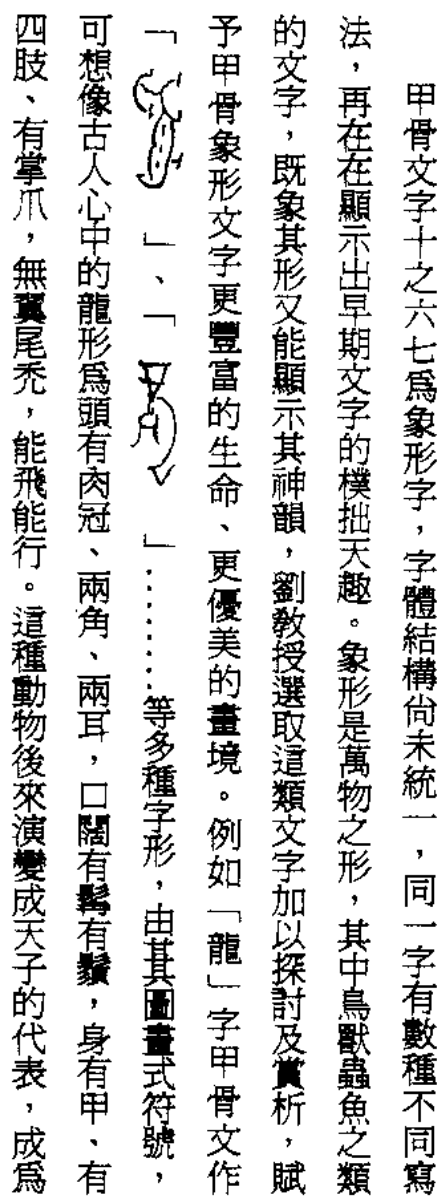 甲骨文字十之六七爲象形字，字體結構尙未統一，同一字有數種不同寫
法，再在在顯示出早期文字的樸拙天趣。象形是萬物之形，其中鳥獸蟲魚之類
的文字，既象其形又能顯示其神韻，劉敎授選取這類文字加以探討及賞析，賦
予甲骨象形文字更豐富的生命、更優美的畫境。例如「龍」字甲骨文作
「」、「」………等多種字形，由其圖畫式符號，
可想像古人心中的龍形爲頭有肉冠、兩角、兩耳，口闊有鬍有鬚，身有甲、有
四肢、有掌爪，無翼尾禿，能飛能行。這種動物後來演變成天子的代表，成爲